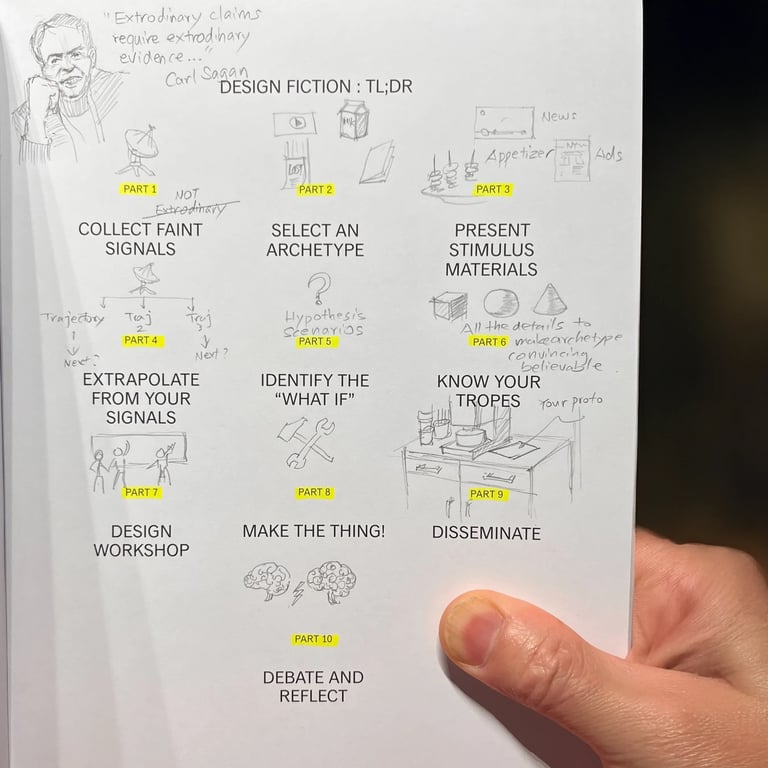 "Extrodinary claims
require extrodinary
evidence..."
Carl Sagan
DESIGN FICTION : TL;DR
News
Appetizer
Ads
PART 1
PART 2
PART 3
NOT
Extrodinary
COLLECT FAINT
SIGNALS
SELECT AN
ARCHETYPE
PRESENT
STIMULUS
MATERIALS
Trajectory
Traj
2
Traj
3
Next?
Next?
Hypothesis
scenarios
All the details to
make archetype
convincing
believable.
PART 4
PART 5
PART 6
EXTRAPOLATE
FROM YOUR
SIGNALS
IDENTIFY THE
“WHAT IF”
KNOW YOUR
TROPES
Your proto
PART 7
PART 8
PART 9
DESIGN
WORKSHOP
MAKE THE THING!
DISSEMINATE
PART 10
DEBATE AND
REFLECT